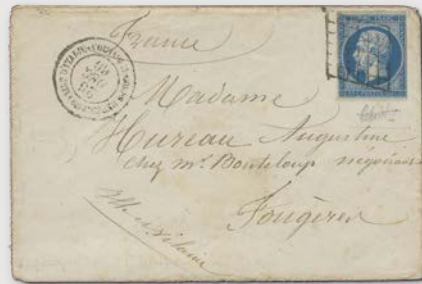 France
Madame
Hureau Augustine
chez mr. Bouteloup négociant
Fougères
Ille et vilaine